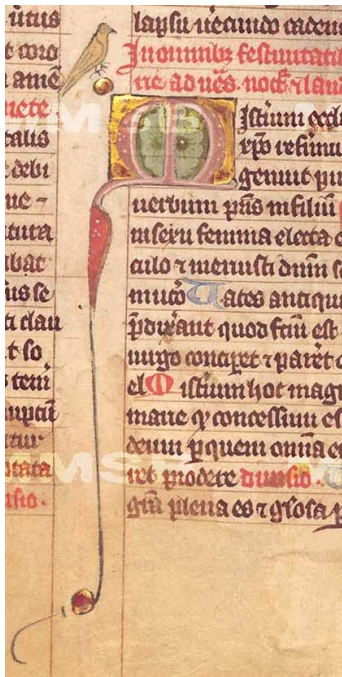 utus
t coro
amē
nete
talis
debi
ue ⁊
tura
bat
us se
ti clau
t so
tem
nuptū
tur
ptata
nsio.
lapsu uecundo caden
In omnibꝫ festiuitatib
ne ad ues. noct. ⁊ lau
Misterium eccl
xpo
genuit pu
uerbum pris in filiū
in sexu femina electa e
culo ⁊ meruisti dnm s
Vates antiqui
p̄dixant quod fcm est
uirgo conciperet ⁊ paret
el Misterium hoc mag
maue qr concessum es
deum ꝑ quem omnia e
ret prodere diuisio.
gra plena es ⁊ glosa p